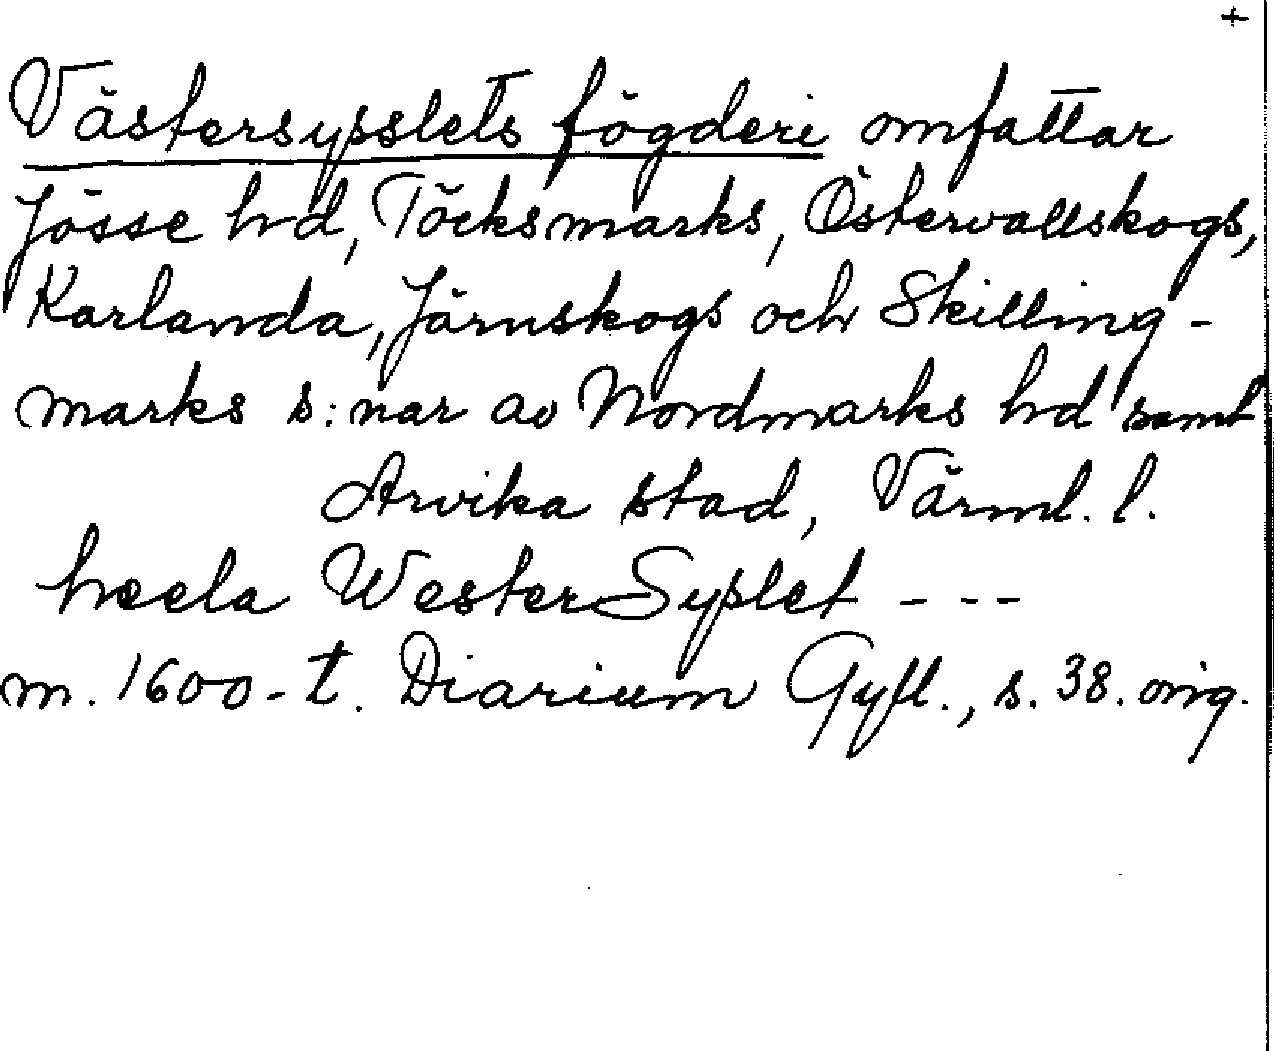 +
Västersysslets fögderi omfattar
Jösse hd, Töcksmarks, Östervallskogs,
Karlanda, Järnskogs och Skilling-
marks s:nar av Nordmarks hd samt
Arvika stad, Värml. l.
heela WesterSyslet - - -
m. 1600-t. Diarium Gyll., s. 38. orig.